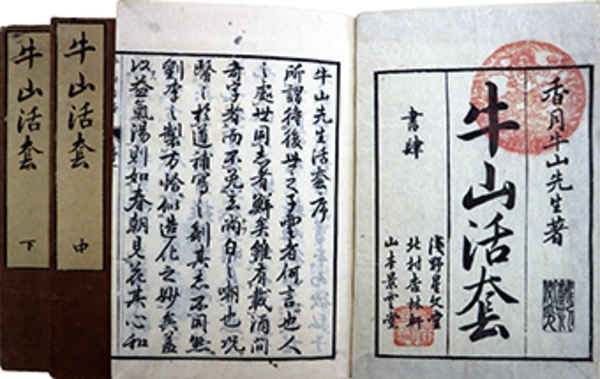 香月牛山先生著
牛山活套
書肆
淺野星文堂
北村杏林軒
山本景雲堂
牛山先生活套序
所謂待後世之子雲者何言也人
之處世同志者鮮矣雖有載酒問
奇字者而不免玄尚白之嘲也況
醫之於道補寫之劑其志不同然
劉李之製方恰似造化之妙矣蓋
以益氣湯則如春朝見花其心和
牛山活套
中
牛山活套
下